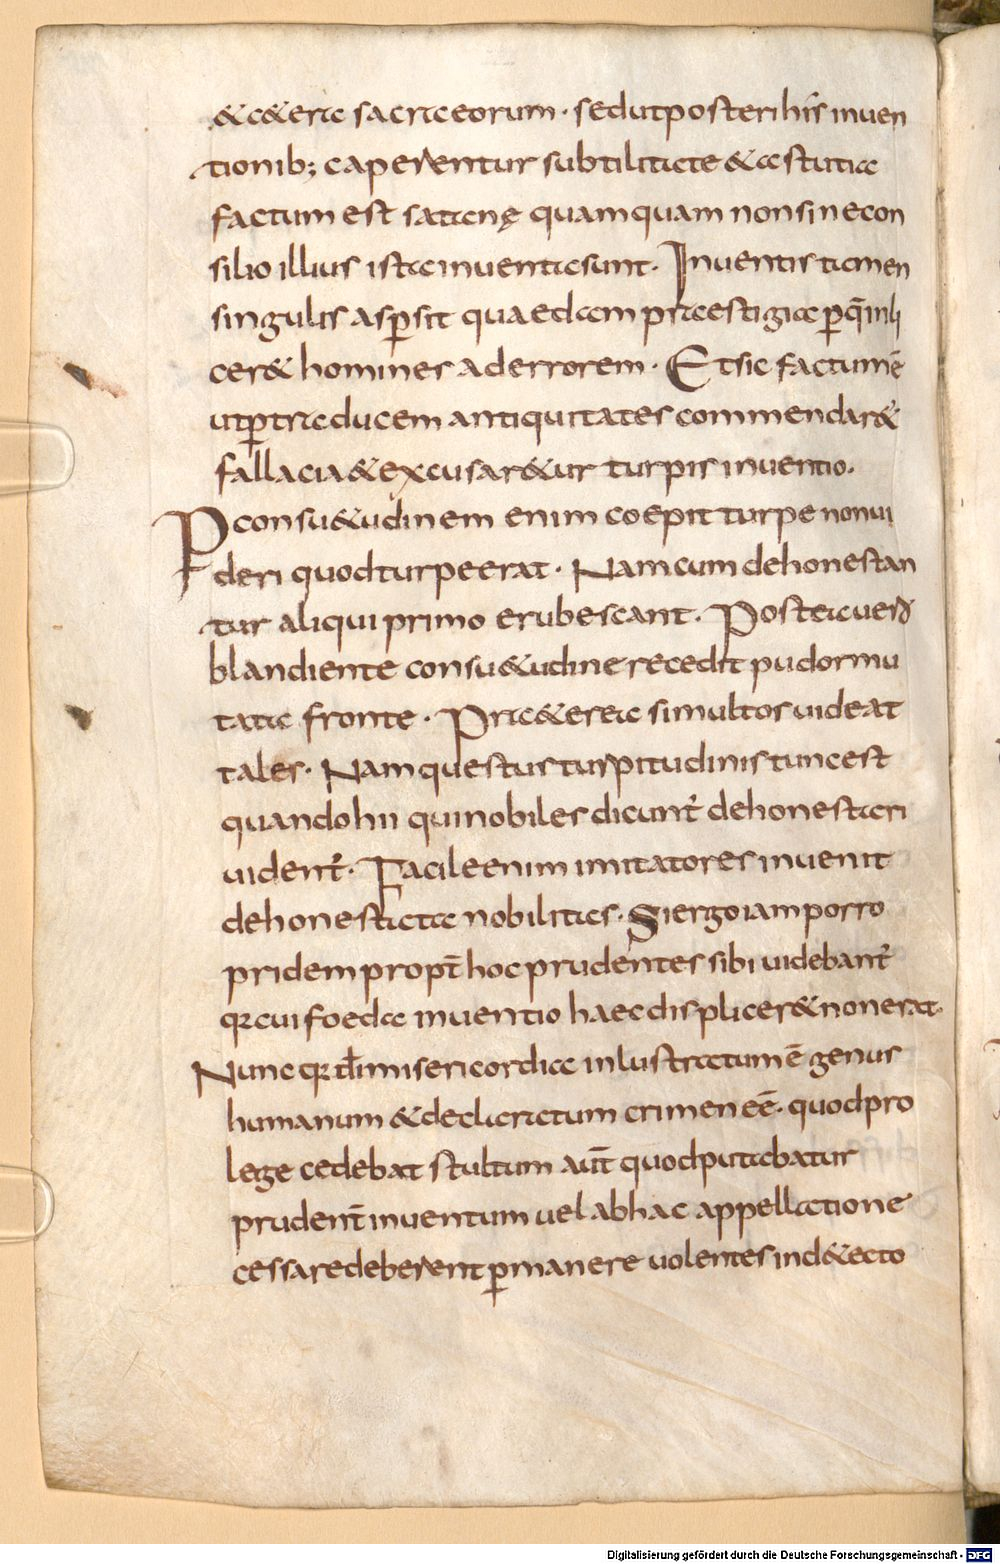 &c&era sacra eorum· sed ut posteri his̄ inuen
tionib; caperentur subtilitate & astutia
factum est satanę quamquam non sine con
silio illius ista inuenta sunt· Inuentis tamen
singulis aspsit quaedam praestigia p̱ q̄ inli
cer& homines ad errorem· Et sic factum ē
ut p̱ traducem antiquitates commendar&
fallacia & excusar&ur turpis inuentio·
P consu&udinem enim coepit turpe non ui
deri quod turpe erat· Nam cum dehonestan
tur aliqui primo erubescant· Postea uero
blandiente consu&udine recedit pudor mu
tata fronte· Pra&erea simul tos uideat
tales· Nam questus turpitudinis tunc est
quando hii qui nobiles dicunt̄ dehonestari
uident̄· Facile enim imitatores inuenit
dehonestata nobilitas· Si ergo iam porro
pridem propt̄ hoc prudentes sibi uidebant̄
qa cui foeda inuentio haec displicer& non erat·
Nunc qa dī misericordia inlustratum ē genus
humanum & declaratum crimen eē· quod pro
lege cedebat stultum aut̄ quod putabatur
prudent̄ inuentum uel ab hac appellatione
cessare deberent p̱manere uolentes in d&ecto
Digitalisierung gefördert durch die Deutsche Forschungsgemeinschaft - DFG